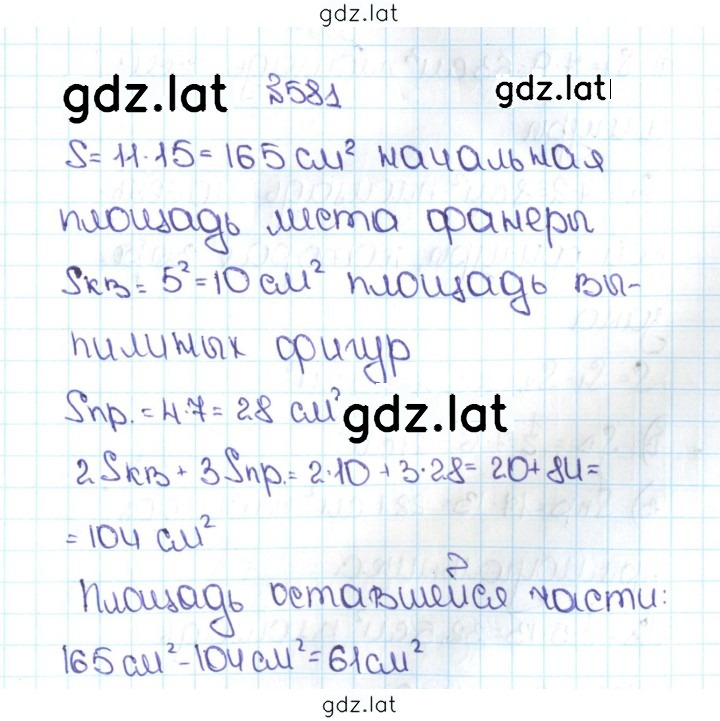 gdz.lat
gdz.lat 3581 gdz.lat
S = 11·15 = 165 см² начальная
площадь листа фанеры
Sкв = 5² = 10 см² площадь вы-
пилиных фигур
Sпр. = 4·7 = 28 см² gdz.lat
2Sкв + 3Sпр. = 2·10 + 3·28 = 20 + 84 =
= 104 см²
Площадь оставшейся части:
165 см² - 104 см² = 61 см²
gdz.lat